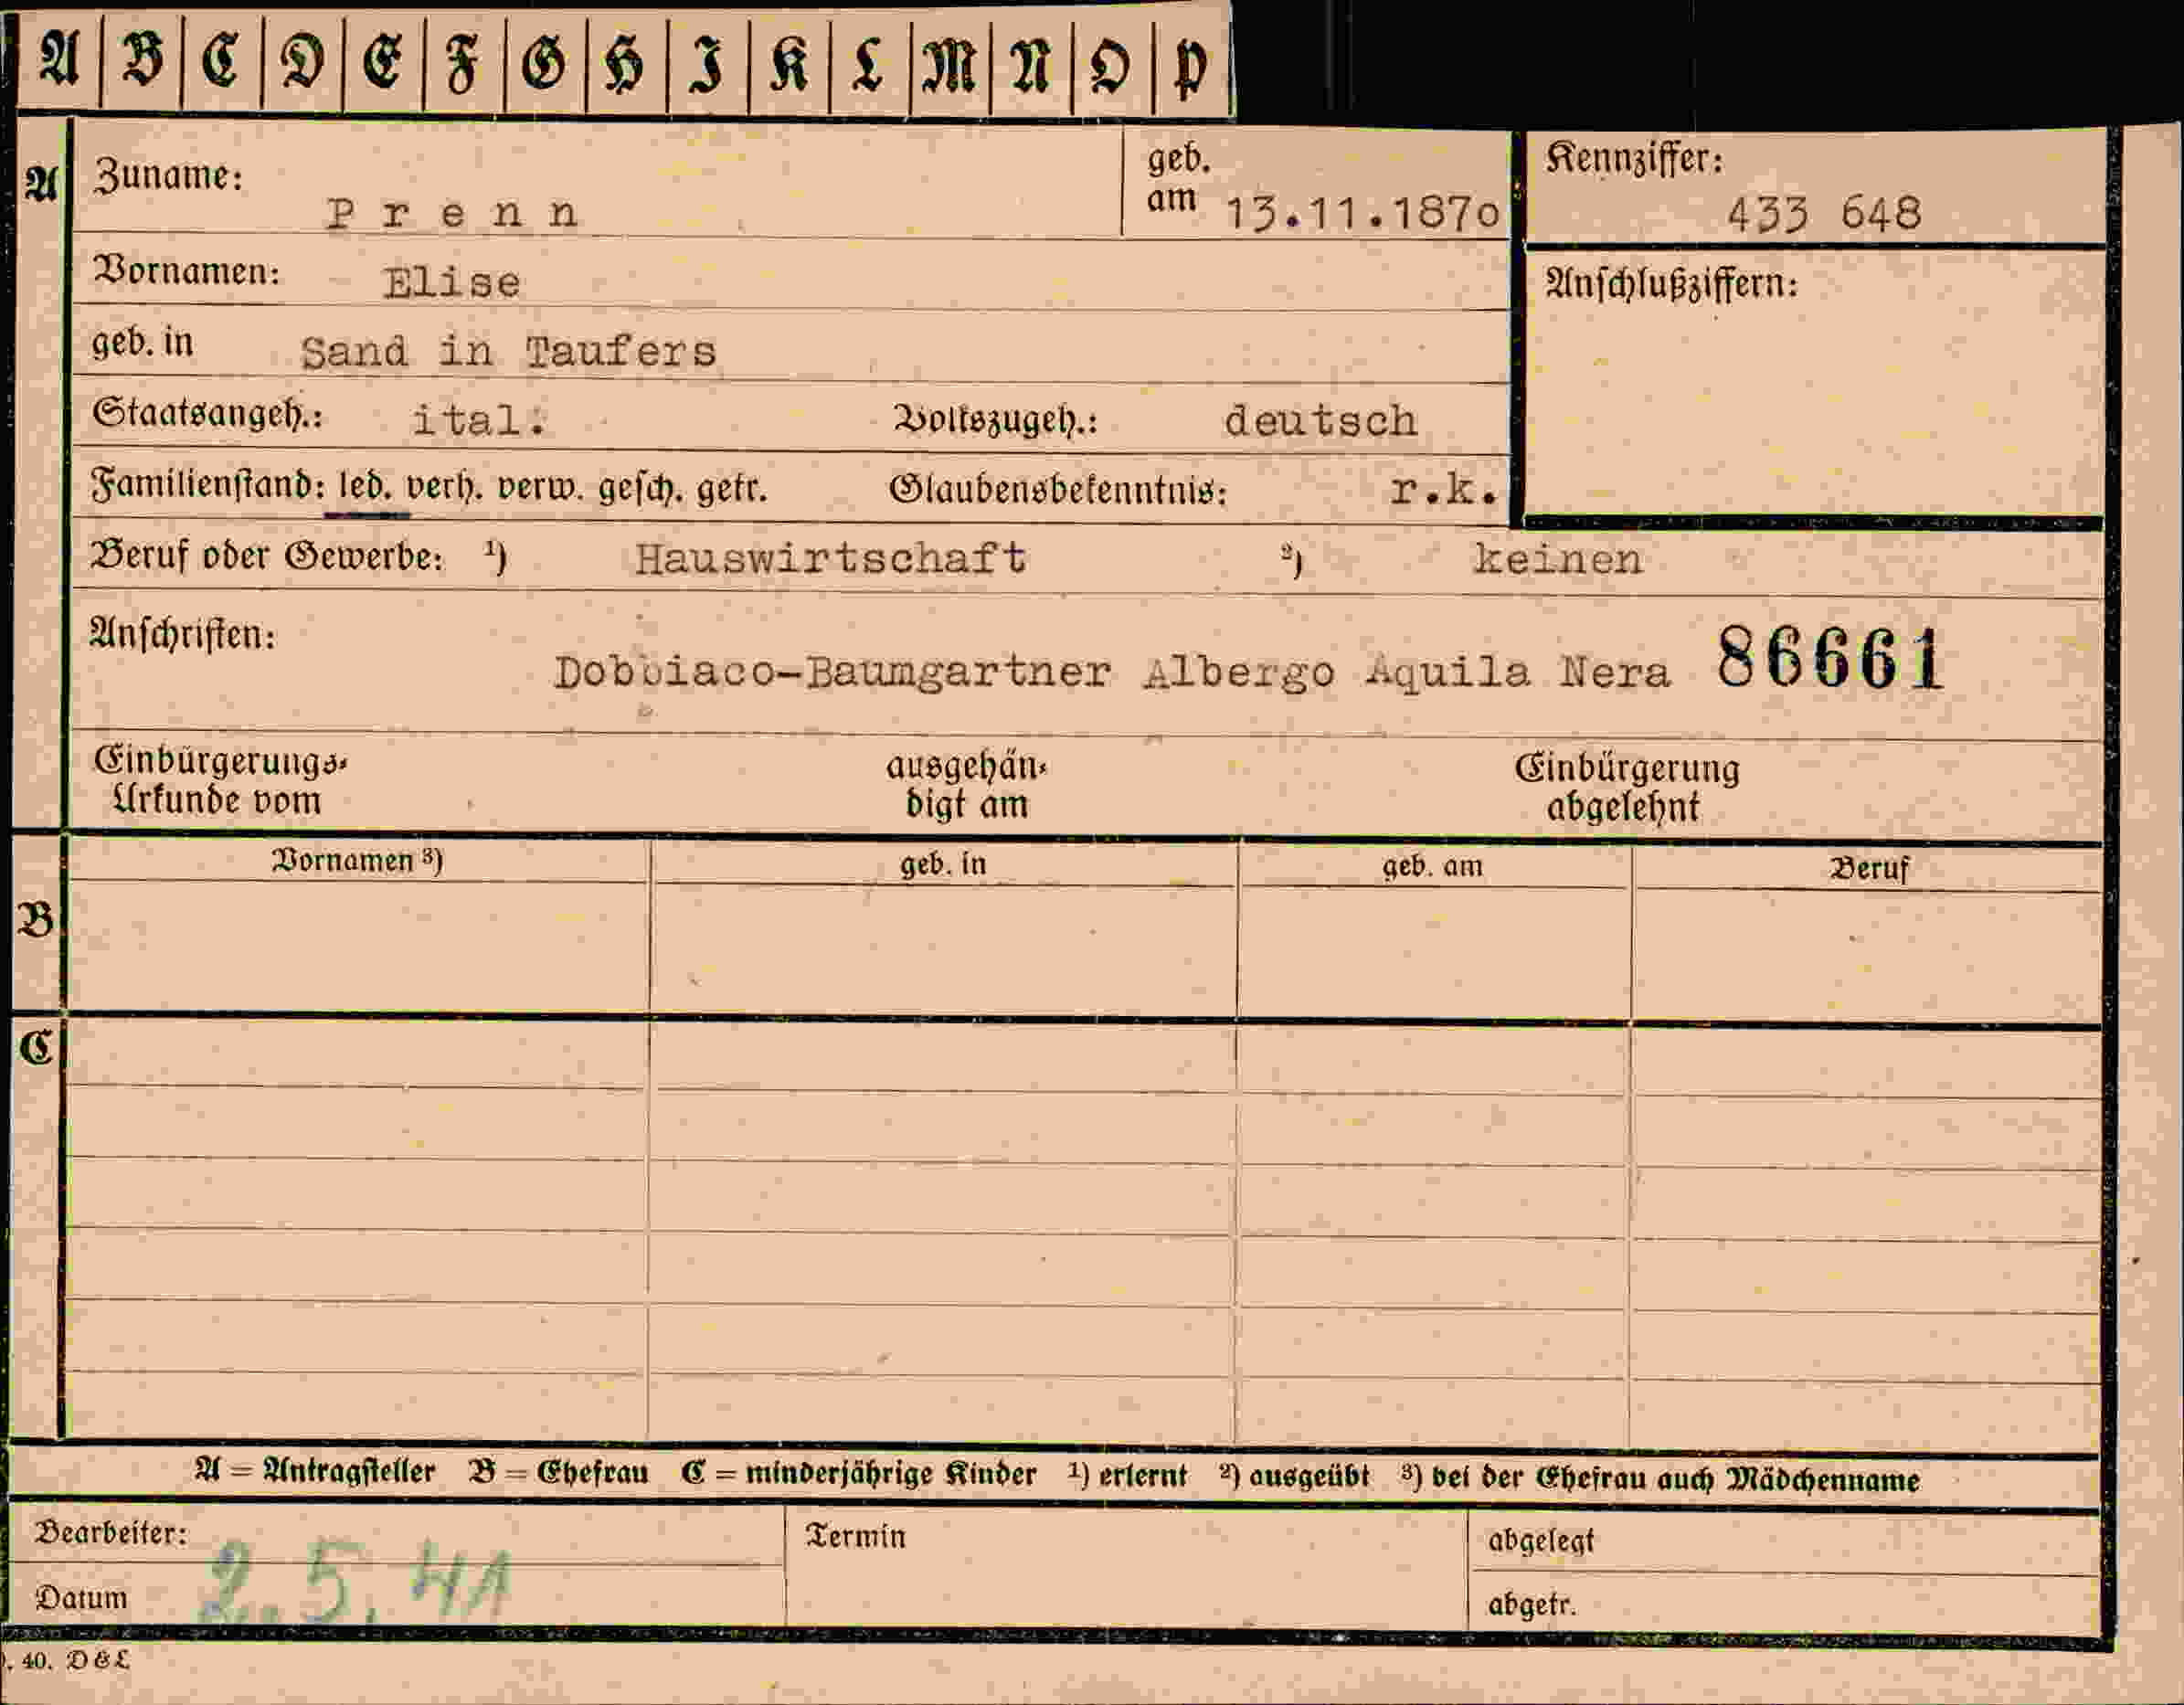 A B C D E F G H I K L M N O P
A Zuname: Prenn geb. am 13.11.1870 Kennziffer: 433 648
Vornamen: Elise Anschlußziffern:
geb. in Sand in Taufers
Staatsangeh.: ital. Volkszugeh.: deutsch
Familienstand: led. verh. verw. gesch. getr. Glaubensbekenntnis: r.k.
Beruf oder Gewerbe: ¹) Hauswirtschaft ²) keinen
Anschriften:
Dobbiaco-Baumgartner Albergo Aquila Nera 86661
Einbürgerungs- ausgehän- Einbürgerung
Urkunde vom digt am abgelehnt
Vornamen ³) geb. in geb. am Beruf
B
C
A = Antragsteller B = Ehefrau C = minderjährige Kinder ¹) erlernt ²) ausgeübt ³) bei der Ehefrau auch Mädchenname
Bearbeiter: Termin abgelegt
Datum 2.5.41 abgetr.
. 40. D & L